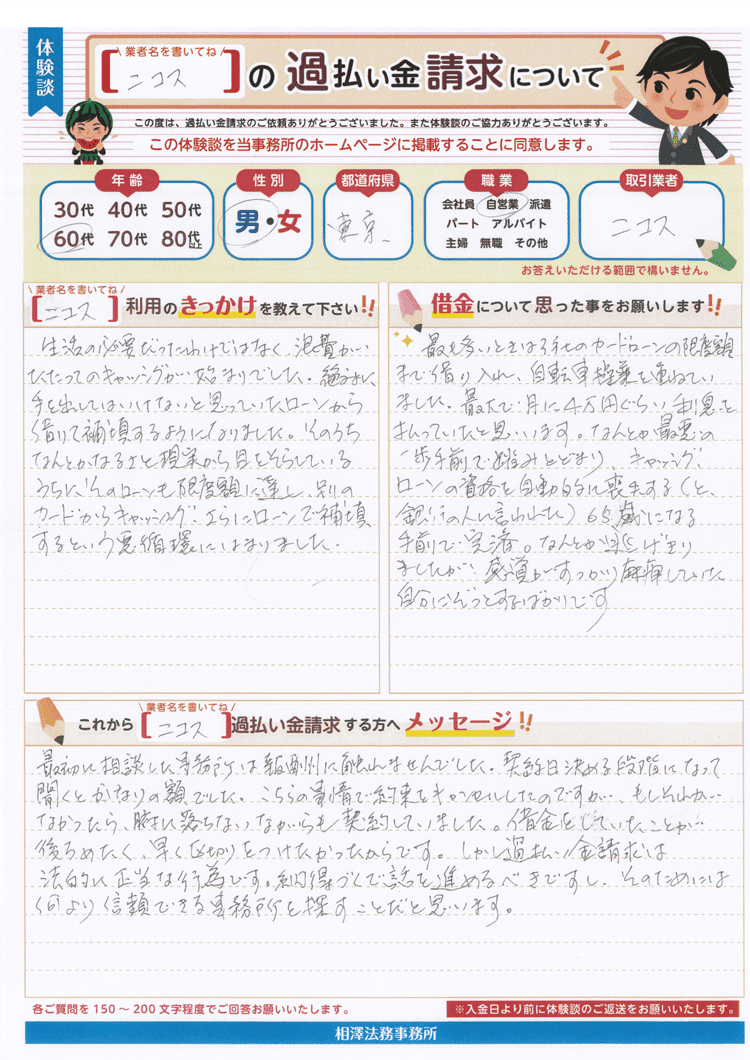 体験談
業者名を書いてね
[ニコス]の過払い金請求について
この度は、過払い金請求のご依頼ありがとうございました。また体験談のご協力ありがとうございます。
この体験談を当事務所のホームページに掲載することに同意します。
年齢
30代 40代 50代
60代 70代 80代以上
性別
男・女
都道府県
東京
職業
会社員 自営業 派遣
パート アルバイト
主婦 無職 その他
取引業者
ニコス
お答えいただける範囲で構いません。
業者名を書いてね
[ニコス]利用のきっかけを教えて下さい!!
生活の必要だったわけではなく、浪費が
たたってのキャッシングが始まりでした。絶対に
手を出してはいけないと思っていたローンから
借りて補填するようになりました。そのうち
なんとかなるさと現実から目をそらしている
うちに、そのローンも限度額に達し、別の
カードからキャッシング、さらにローンで補填
するという悪循環にはまりました。
借金について思った事をお願いします!!
最も多いときは3社のカードローンの限度額
まで借り入れ、自転車操業を重ねてい
ました。最大で月に4万円ぐらい利息を
払っていたと思います。なんとか最悪の
一歩手前で踏みとどまり、キャッシング、
ローンの資格を自動的に喪失する(と、
銀行の人に言われた)65歳になる
手前で完済。なんとか逃げきり
ましたが、感覚がすっかり麻痺していた
自分にぞっとするばかりです
業者名を書いてね
これから[ニコス]過払い金請求する方へメッセージ!!
最初に相談した事務所は報酬に触れませんでした。契約日決める段階になって
聞くとかなりの額でした。こちらの事情で約束をキャンセルしたのですが、もしそれが
なかったら、腑に落ちないながらも契約していました。借金をしていたことが
後ろめたく、早く区切りをつけたかったからです。しかし過払い金請求は
法的に正当な行為です。納得づくで話を進めるべきですし、そのためには
何より信頼できる事務所を探すことだと思います。
各ご質問を150～200文字程度でご回答お願いいたします。
※入金日より前に体験談のご返送をお願いいたします。
相澤法務事務所